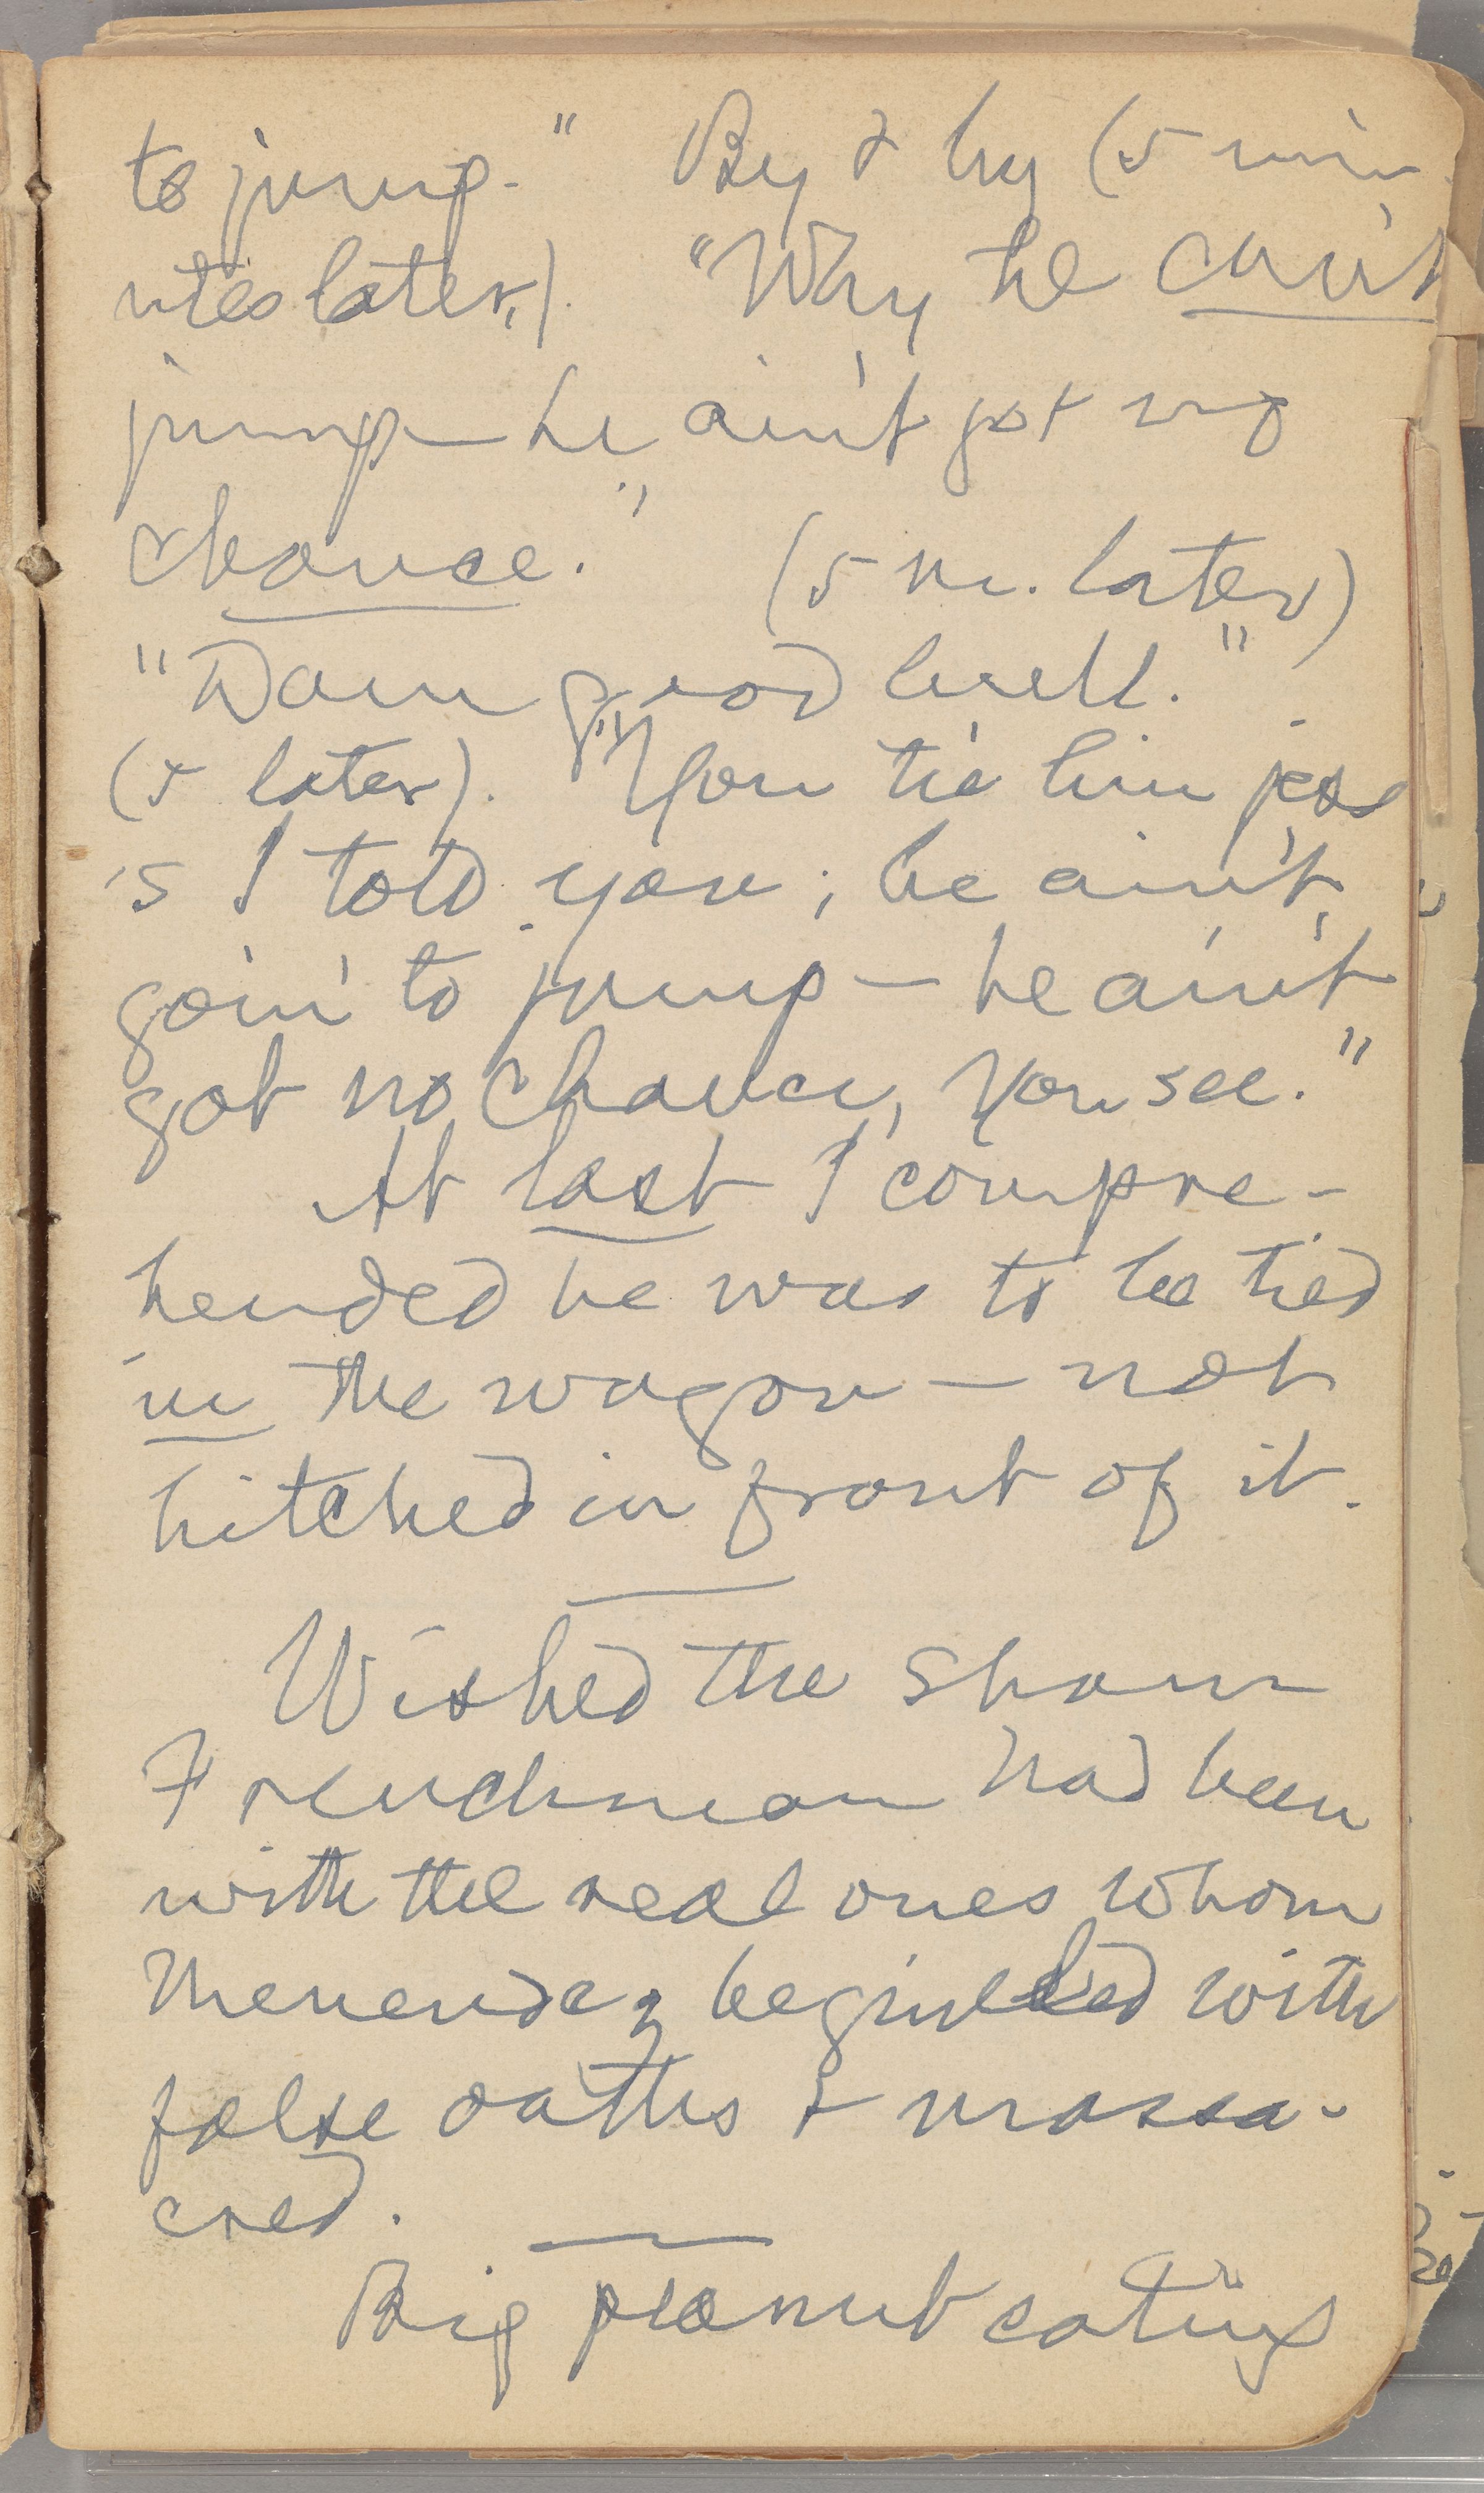 to jump." By & by (5 min-
utes later,). "Why he can't
jump—he ain't got no
chance." (5 m. later)
"Dam good bull."
(5 later). "You tie him jes
's I told you; he ain't
goin' to jump—he ain't
got no chance, you see."
At last I compre-
hended he was to be tied
in the wagon—not
hitched in front of it.
Wished the sham
Frenchman had been
with the real ones whom
Menendez beguiled with
false oaths & massa-
cred.
Big peanut eating